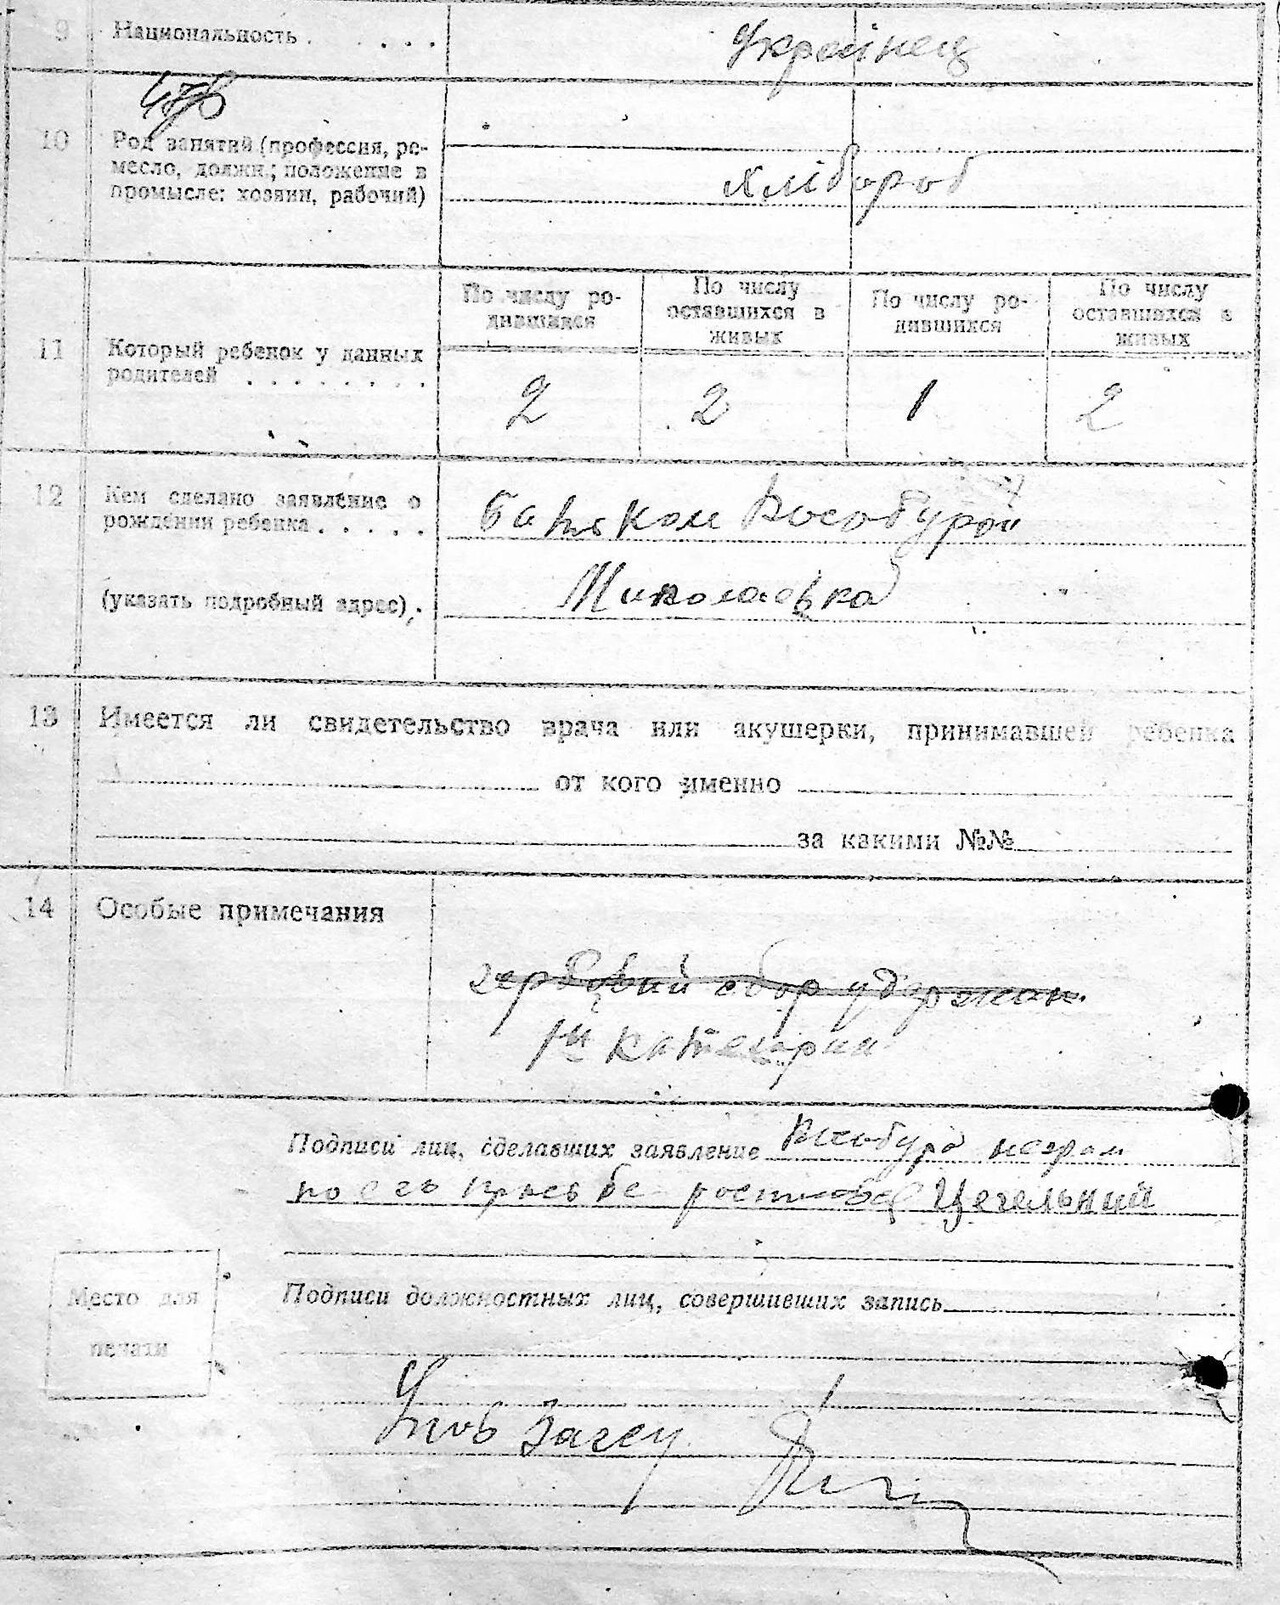 9 Национальность . . . . .
Украінец
10 Род занятий (профессия, ре-
месло, должн.; положение в
промысле: хозяин, рабочий)
хлібороб
11 Который ребенок у данных
родителей . . . . . . . .
По числу ро-
дившихся
По числу
оставшихся в
живых
По числу ро-
дившихся
По числу
оставшихся в
живых
2 2 1 2
12 Кем сделано заявление о
рождении ребенка . . . . .
Батьком
(указать подробный адрес) .
Миколаевка
13 Имеется ли свидетельство врача или акушерки, принимавшей ребенка
от кого именно
за какими №№
14 Особые примечания
гербовий сбор удержан.
1й категории
Подписи лиц, сделавших заявление
по его просьбе Цегельний
Место для
печати
Подписи должностных лиц, совершивших запись
Упов Загсу